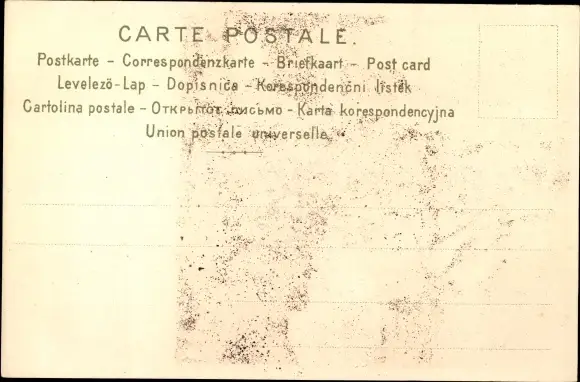 CARTE POSTALE.
Postkarte – Correspondenzkarte – Briefkaart – Post card
Levelező-Lap – Dopisnice – Korespondenčni listek
Cartolina postale – Открытое письмо – Karta korespondencyjna
Union postale universelle.